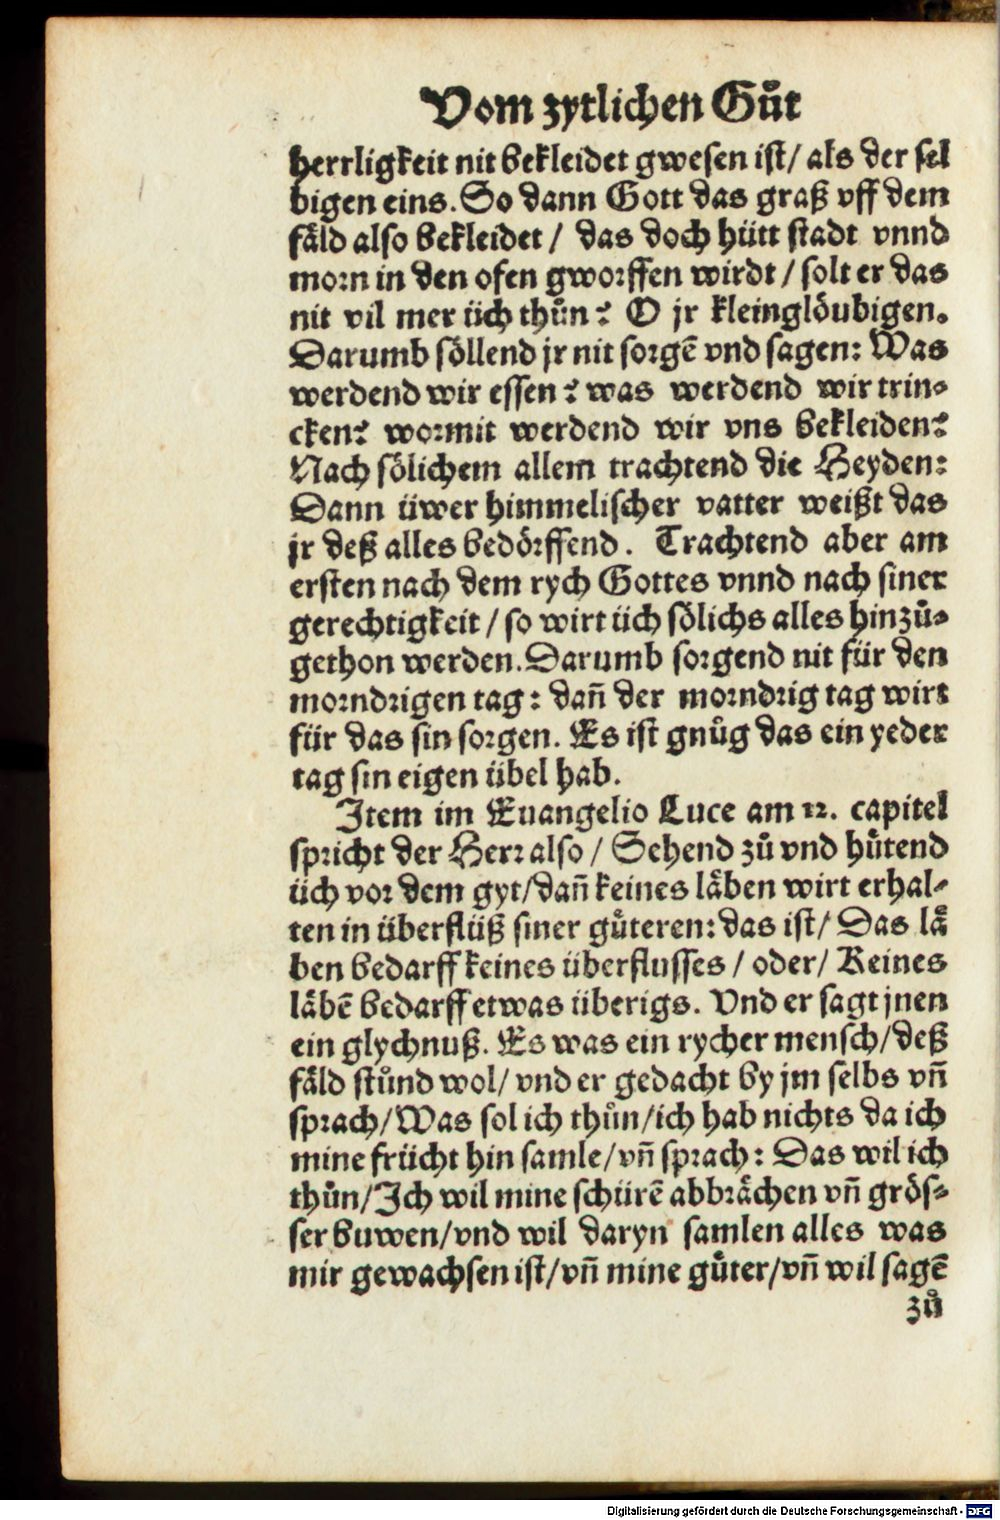 Vom zytlichen Gůt
herrligkeit nit bekleidet gwesen ist/ als der sel
bigen eins. So dann Gott das graß vff dem
fäld also bekleidet / das doch hütt stadt vnnd
morn in den ofen gworffen wirdt / solt er das
nit vil mer üch thůn? O jr kleinglöubigen.
Darumb söllend jr nit sorgē vnd sagen: Was
werdend wir essen? was werdend wir trin-
cken? wormit werdend wir vns bekleiden?
Nach sölichem allem trachtend die Heyden:
Dann üwer himmelischer vatter weißt das
jr deß alles bedörffend. Trachtend aber am
ersten nach dem rych Gottes vnnd nach siner
gerechtigkeit / so wirt üch sölichs alles hinzů-
gethon werden. Darumb sorgend nit für den
morndrigen tag: dañ der morndrig tag wirt
für das sin sorgen. Es ist gnůg das ein yeder
tag sin eigen übel hab.
Item im Euangelio Luce am 12. capitel
spricht der Herr also / Sehend zů vnd hütend
üch vor dem gyt/dañ keines läben wirt erhal-
ten in überflüß siner güteren: das ist/ Das lä
ben bedarff keines überflusses / oder/ Keines
läbē bedarff etwas überigs. Vnd er sagt jnen
ein glychnuß. Es was ein rycher mensch/deß
fäld stůnd wol/ vnd er gedacht by jm selbs vñ
sprach/Was sol ich thůn/ich hab nichts da ich
mine frücht hin samle/vñ sprach: Das wil ich
thůn/Ich wil mine schürē abbrächen vñ grös-
ser buwen/vnd wil daryn samlen alles was
mir gewachsen ist/vñ mine güter/vñ wil sagē
zů
Digitalisierung gefördert durch die Deutsche Forschungsgemeinschaft - DFG